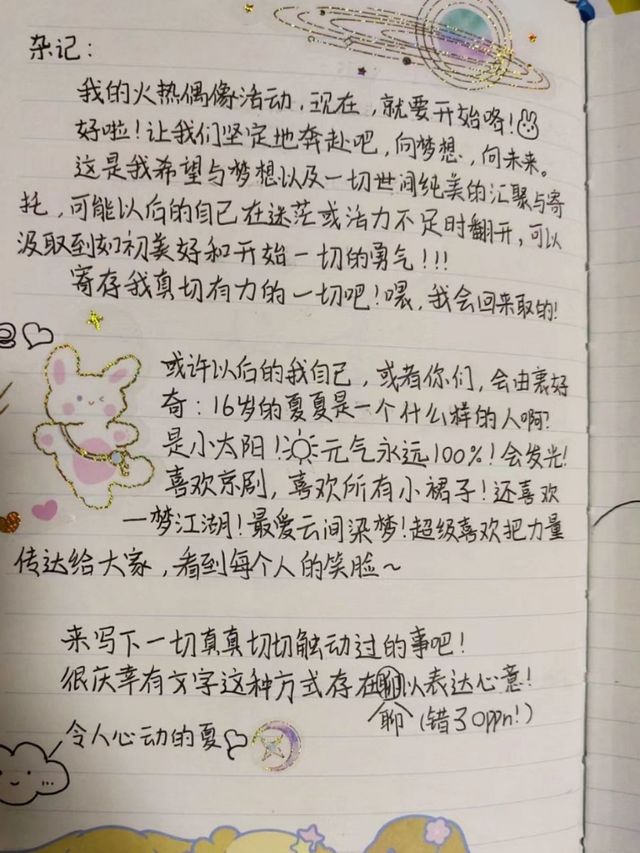 杂记：
我的火热偶像活动，现在，就要开始咯！
好啦！让我们坚定地奔赴吧，向梦想，向未来。
这是我希望与梦想以及一切世间纯美的汇聚与寄
托，可能以后的自己在迷茫或活力不足时翻开，可以
汲取到如初美好和开始一切的勇气！！！
寄存我真切有力的一切吧！喂，我会回来取的！
或许以后的我自己，或者你们，会由衷好
奇：16岁的夏夏是一个什么样的人啊？
是小太阳！元气永远100%！会发光！
喜欢京剧，喜欢所有小裙子！还喜欢
一梦江湖！最爱云间染梦！超级喜欢把力量
传达给大家，看到每个人的笑脸～
来写下一切真真切切触动过的事吧！
很庆幸有文字这种方式存在以表达心意！
聊（错了oppn！）
令人心动的夏